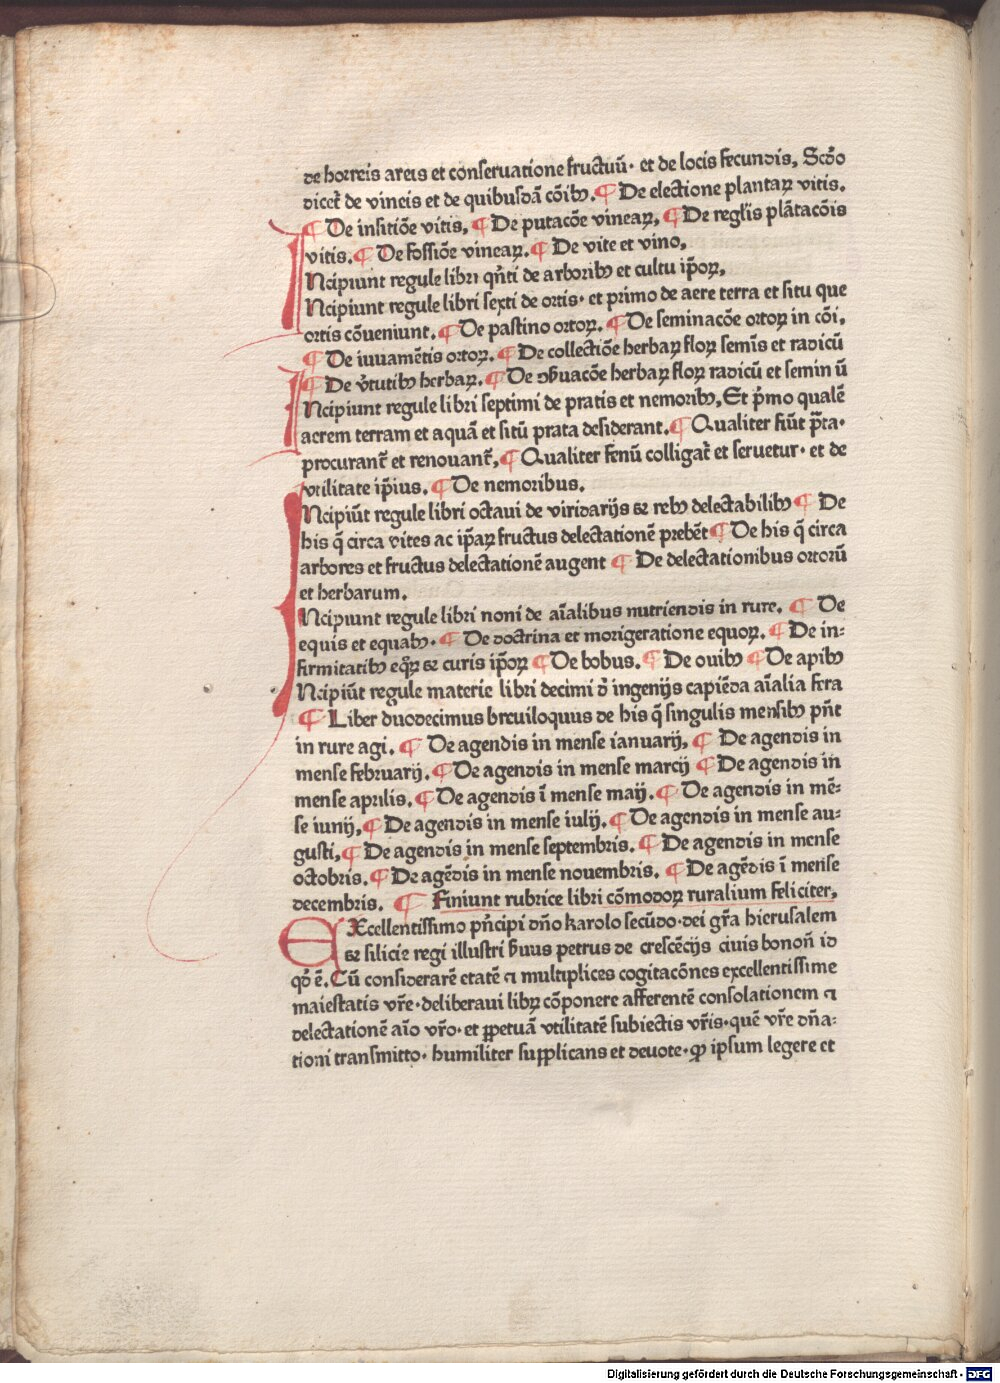 de horreis areis et conseruatione fructuū· et de locis fecundis, Scdo
dicet̄ de vineis et de quibusdā cōibꝫ. ¶ De electione plantaꝝ vitis.
¶ De insitiōe vitis, ¶ De putacōe vineaꝝ, ¶ De regl̄is plātacōis
vitis. ¶ De fossiōe vineaꝝ. ¶ De vite et vino,
INcipiunt regule libri qn̄ti de arboribꝫ et cultu ip̄oꝝ,
INcipiunt regule libri sexti de ortis· et primo de aere terra et situ que
ortis cōueniunt. ¶ De pastino ortoꝝ. ¶ De seminacōe ortoꝝ in cōi,
¶ De iuuamētis ortoꝝ. ¶ De collectiōe herbaꝝ floꝝ semīs et radicū
¶ De v̄tutibꝫ herbaꝝ. ¶ De ꝯẜuacōe herbaꝝ floꝝ radicū et semin ū
INcipiunt regule libri septimi de pratis et nemoribꝫ, Et p̄mo qualē
aerem terram et aquā et sitū prata desiderant. ¶ Qualiter fiūt p̄ta·
procurant̄ et renouant̄, ¶ Qualiter fenū colligat̄ et seruetur· et de
vtilitate ip̄ius. ¶ De nemoribus.
INcipiūt regule libri octaui de viridarijs ⁊ rebꝫ delectabilibꝫ ¶ De
his q̄ circa vites ac ip̄aꝝ fructus delectationē prebēt ¶ De his q̄ circa
arbores et fructus delectationē augent ¶ De delectationibus ortorū
et herbarum.
INcipiunt regule libri noni de aīalibus nutriendis in rure. ¶ De
equis et equabꝫ· ¶ De doctrina et morigeratione equoꝝ. ¶ De in⸗
firmitatibꝫ eqꝝ ⁊ curis ip̄oꝝ ¶ De bobus. ¶ De ouibꝫ ¶ De apibꝫ
INcipiūt regule materie libri decimi d̄ ingenijs capiēda aīalia fera
¶ Liber duodecimus breuiloquus de his q̄ singulis mensibꝫ pn̄t
in rure agi. ¶ De agendis in mense ianuarij, ¶ De agendis in
mense februarij. ¶ De agendis in mense marcij ¶ De agendis in
mense aprilis. ¶ De agendis ī mense maij. ¶ De agendis in mē⸗
se iunij, ¶ De agendis in mense iulij. ¶ De agendis in mense au⸗
gusti, ¶ De agendis in mense septembris. ¶ De agendis in mense
octobris. ¶ De agēdis in mense nouembris. ¶ De agēdis ī mense
decembris. ¶ Finiunt rubrice libri cōmodoꝝ ruralium feliciter,
EXcellentissimo pn̄cipi dn̄o karolo secūdo· dei gr̄a hierusalem
⁊ silicie regi illustri ẜuus petrus de crescēcijs ciuis bonon̄ id
qd̄ ē. Cū considerarē etatē ⁊ multiplices cogitacōnes excellentissime
maiestatis vr̄e· deliberaui libꝝ cōponere afferentē consolationem ⁊
delectationē aīo vr̄o· et ꝑpetuā vtilitatē subiectis vr̄is· quē vr̄e dn̄a⸗
tioni transmitto· humiliter supplicans et deuote· ꝙ ipsum legere et
Digitalisierung gefördert durch die Deutsche Forschungsgemeinschaft - DFG